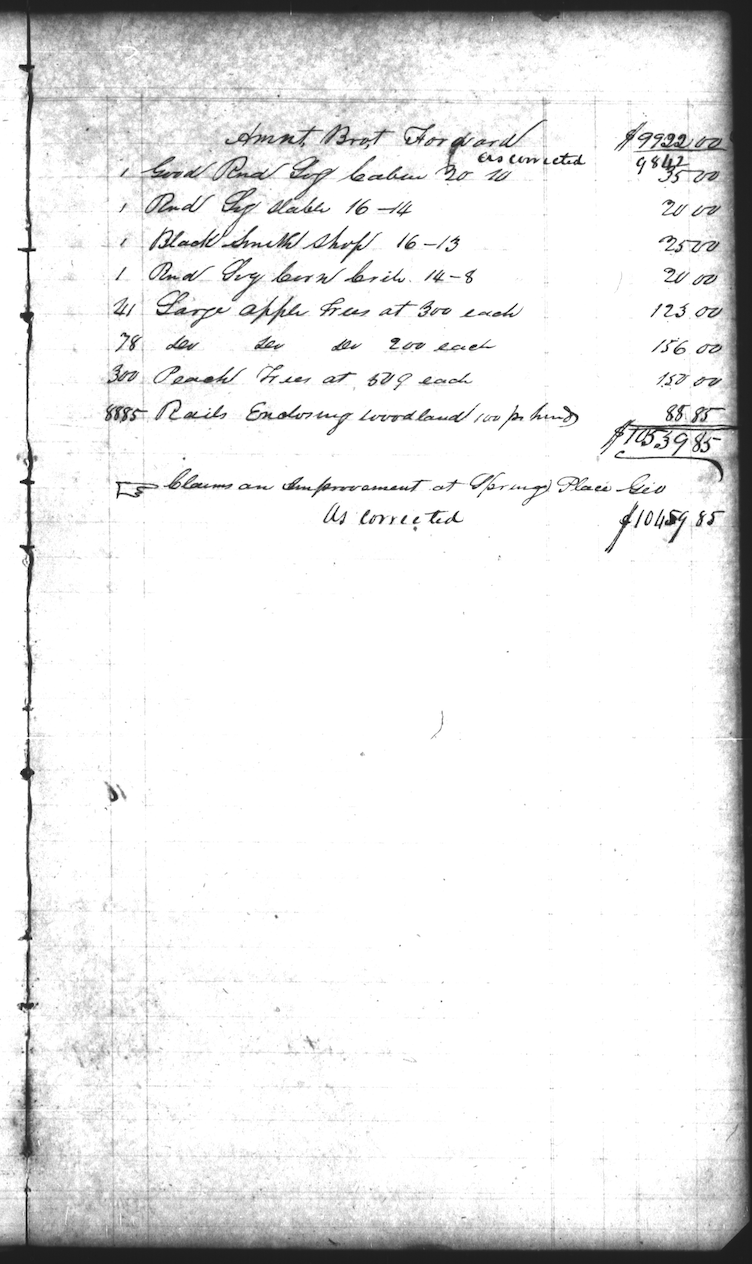 Amnt. Brot Forward $9922 00
as corrected 9842
1 Good Rnd Log Cabin 20 10 35 00
1 Rnd Log Stable 16-14 20 00
1 Black Smith Shop 16-13 25 00
1 Rnd Log Corn Crib 14-8 20 00
41 Large apple trees at 300 each 123 00
78 do do do 200 each 156 00
300 Peach trees at 50¢ each 150 00
8885 Rails Enclosing woodland 100 pr hund 88 85
$10539 85
Claims an Improvement at Spring Place Geo
As corrected $10459 85